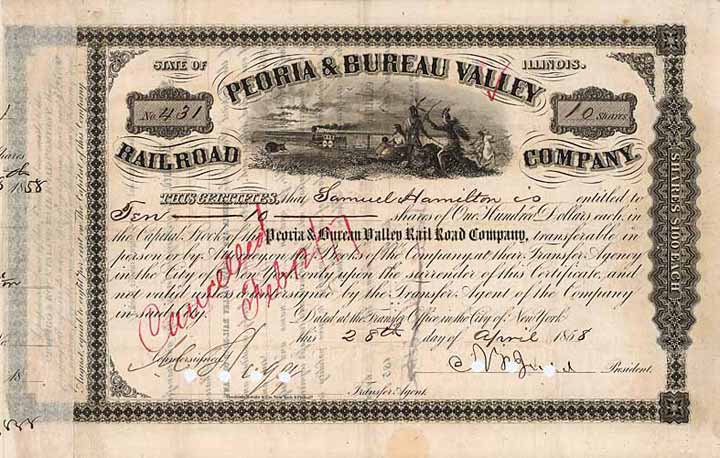 STATE OF ILLINOIS.
PEORIA & BUREAU VALLEY
No. 431
10 Shares
RAILROAD COMPANY.
THIS CERTIFIES, that Samuel Hamilton is entitled to
Ten 10 shares of One Hundred Dollars each, in
the Capital Stock of the Peoria & Bureau Valley Rail Road Company, transferable in
person or by Attorney on the Books of the Company, at their Transfer Agency
in the City of New York only upon the surrender of this Certificate, and
not valid unless countersigned by the Transfer Agent of the Company
in said City.
Dated at the Transfer Office in the City of New York
this 28th day of April 1868
President.
Transfer Agent.
Cancelled
SHARES $100 EACH